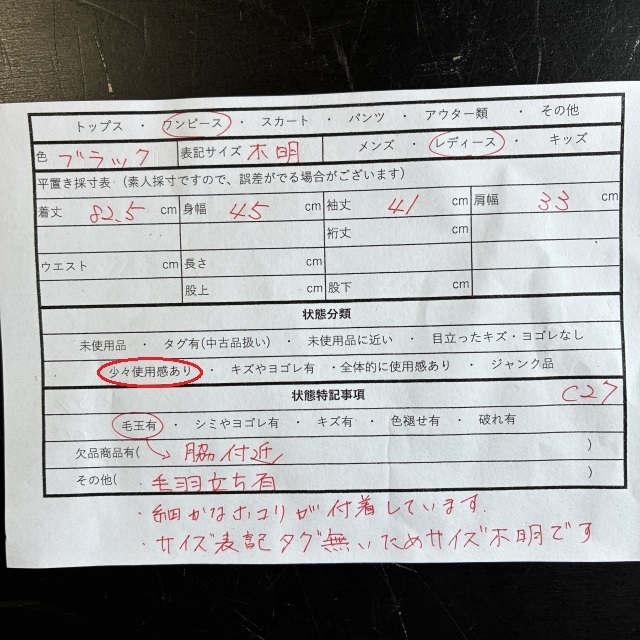 トップス ・ ワンピース ・ スカート ・ パンツ ・ アウター類 ・ その他
色 ブラック 表記サイズ 不明 メンズ ・ レディース ・ キッズ
平置き採寸表 (素人採寸ですので、誤差がでる場合がございます)
着丈 82.5 cm 身幅 45 cm 袖丈 41 cm 肩幅 33 cm
裄丈 cm
ウエスト cm 長さ cm
股上 cm 股下 cm
状態分類
未使用品 ・ タグ有(中古品扱い) ・ 未使用品に近い ・ 目立ったキズ・ヨゴレなし
少々使用感あり ・ キズやヨゴレ有 ・全体的に使用感あり ・ ジャンク品
状態特記事項 C27
毛玉有 ・ シミやヨゴレ有 ・ キズ有 ・ 色褪せ有 ・ 破れ有
欠品商品有( 脇付近 )
その他( ・毛羽立ち有 )
・細かなホコリが付着しています.
・サイズ表記タグ無いためサイズ不明です